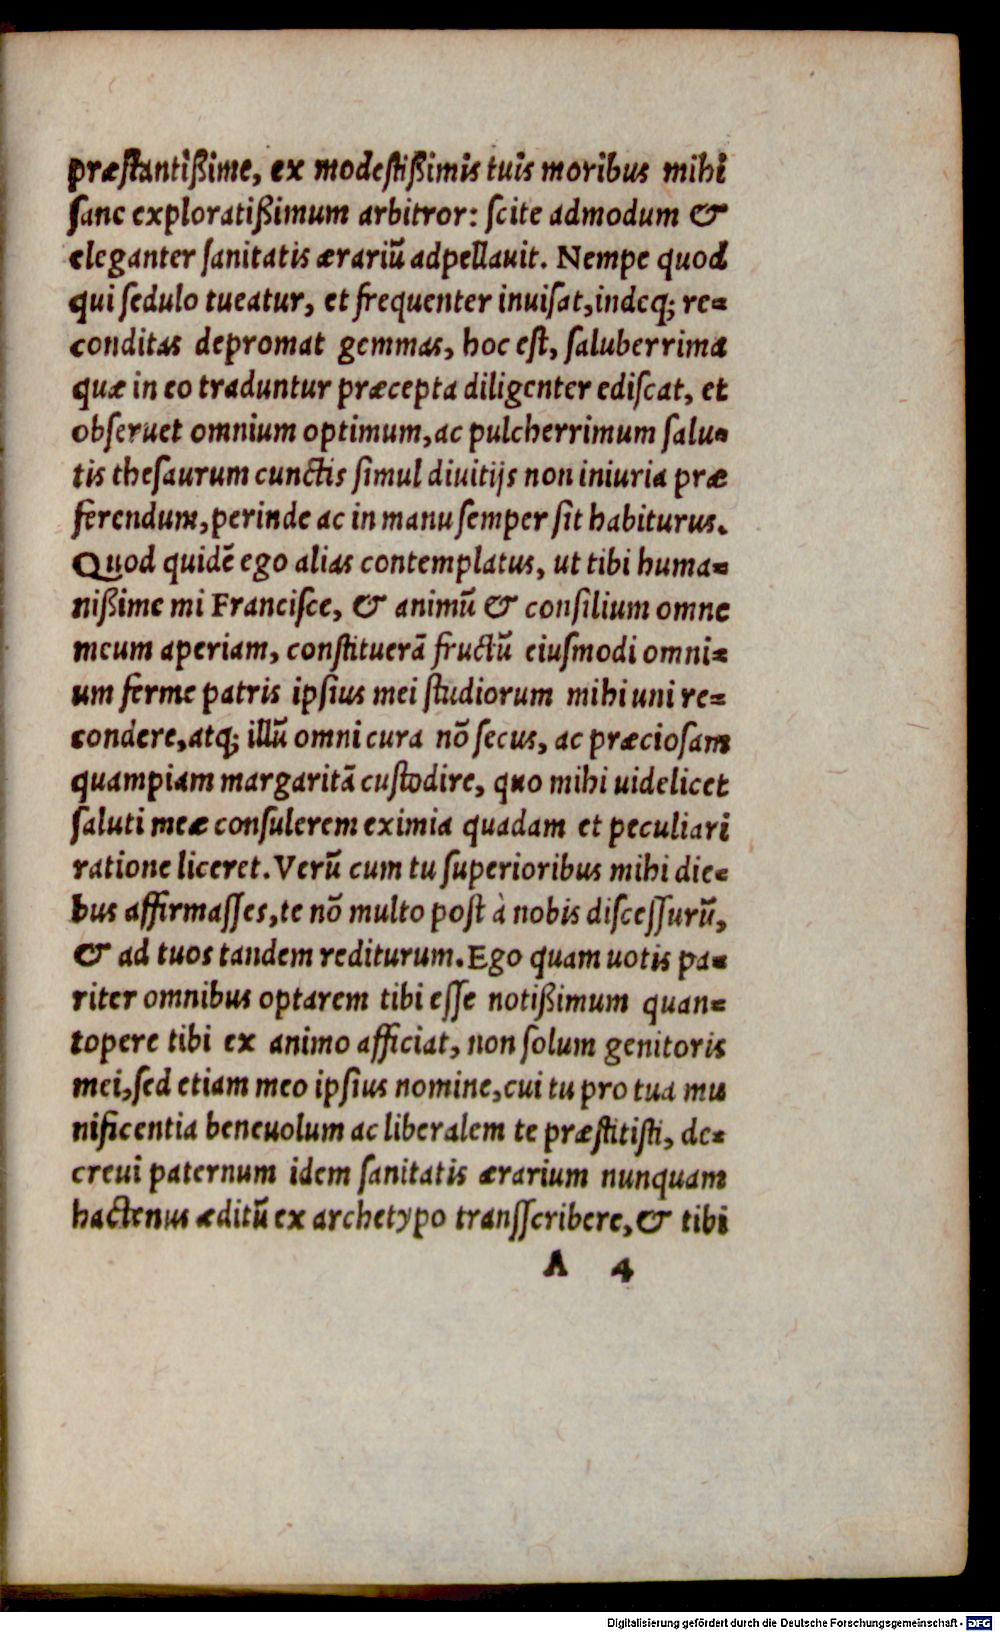 præſtantißime, ex modeſtißimis tuis moribus mihi
ſane exploratißimum arbitror: ſcite admodum &
eleganter ſanitatis ærariũ adpellauit. Nempe quod
qui ſedulo tueatur, et frequenter inuiſat, indeq; re-
conditas depromat gemmas, hoc eſt, ſaluberrima
quæ in eo traduntur præcepta diligenter ediſcat, et
obſeruet omnium optimum, ac pulcherrimum ſalu-
tis theſaurum cunctis ſimul diuitijs non iniuria præ
ferendum, perinde ac in manu ſemper ſit habiturus.
Quod quidẽ ego alias contemplatus, ut tibi huma-
nißime mi Franciſce, & animũ & conſilium omne
meum aperiam, conſtituerã fructũ eiuſmodi omni-
um ferme patris ipſius mei ſtudiorum mihi uni re-
condere, atq; illũ omni cura nõ ſecus, ac præcioſam
quampiam margaritã cuſtodire, quo mihi uidelicet
ſaluti meæ conſulerem eximia quadam et peculiari
ratione liceret. Verũ cum tu ſuperioribus mihi die-
bus affirmaſſes, te nõ multo poſt à nobis diſceſſurũ,
& ad tuos tandem rediturum. Ego quam uotis pa-
riter omnibus optarem tibi eſſe notißimum quan-
topere tibi ex animo afficiat, non ſolum genitoris
mei, ſed etiam meo ipſius nomine, cui tu pro tua mu
nificentia beneuolum ac liberalem te præſtitiſti, de-
creui paternum idem ſanitatis ærarium nunquam
hactenus æditũ ex archetypo tranſſcribere, & tibi
A 4
Digitalisierung gefördert durch die Deutsche Forschungsgemeinschaft - DFG